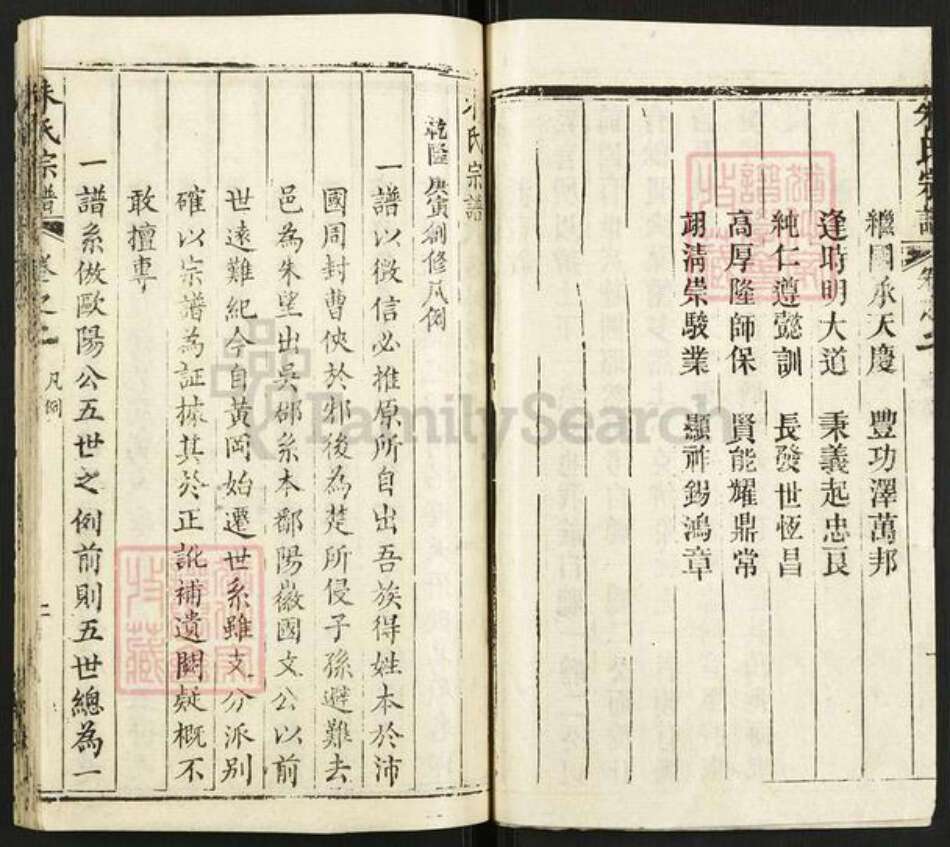 朱氏宗譜
卷之二
繼國承天慶 豐功澤萬邦
逢時明大道 秉義起忠良
純仁遵懿訓 長發世恆昌
高厚隆師保 賢能耀鼎常
翊清崇駿業 顯祚錫鴻章
朱氏宗譜
乾隆庚寅創修凡例
一譜以徵信必推原所自出吾族得姓本於沛
國周封曹俠於邾後為楚所侵子孫避難去
邑為朱望出吳郡系本鄱陽徽國文公以前
世遠難紀今自黃岡始遷世系雖支分派別
確以宗譜為証據其於正訛補遺闕疑概不
敢擅專
一譜系倣歐陽公五世之例前則五世總為一
朱氏宗譜 卷之二 凡例 二
FamilySearch